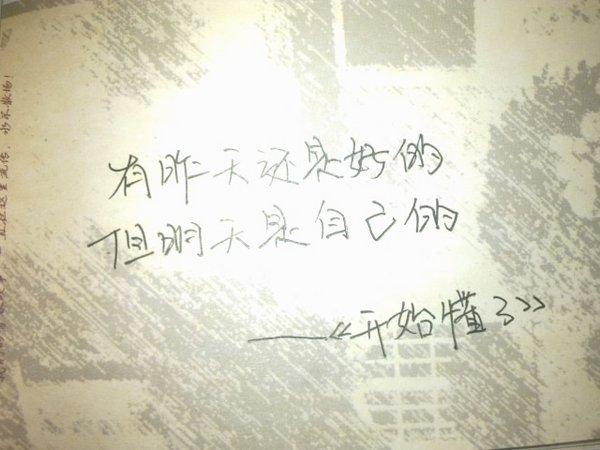 有昨天还是好的
但明天是自己的
——《开始懂了》
永不散场!